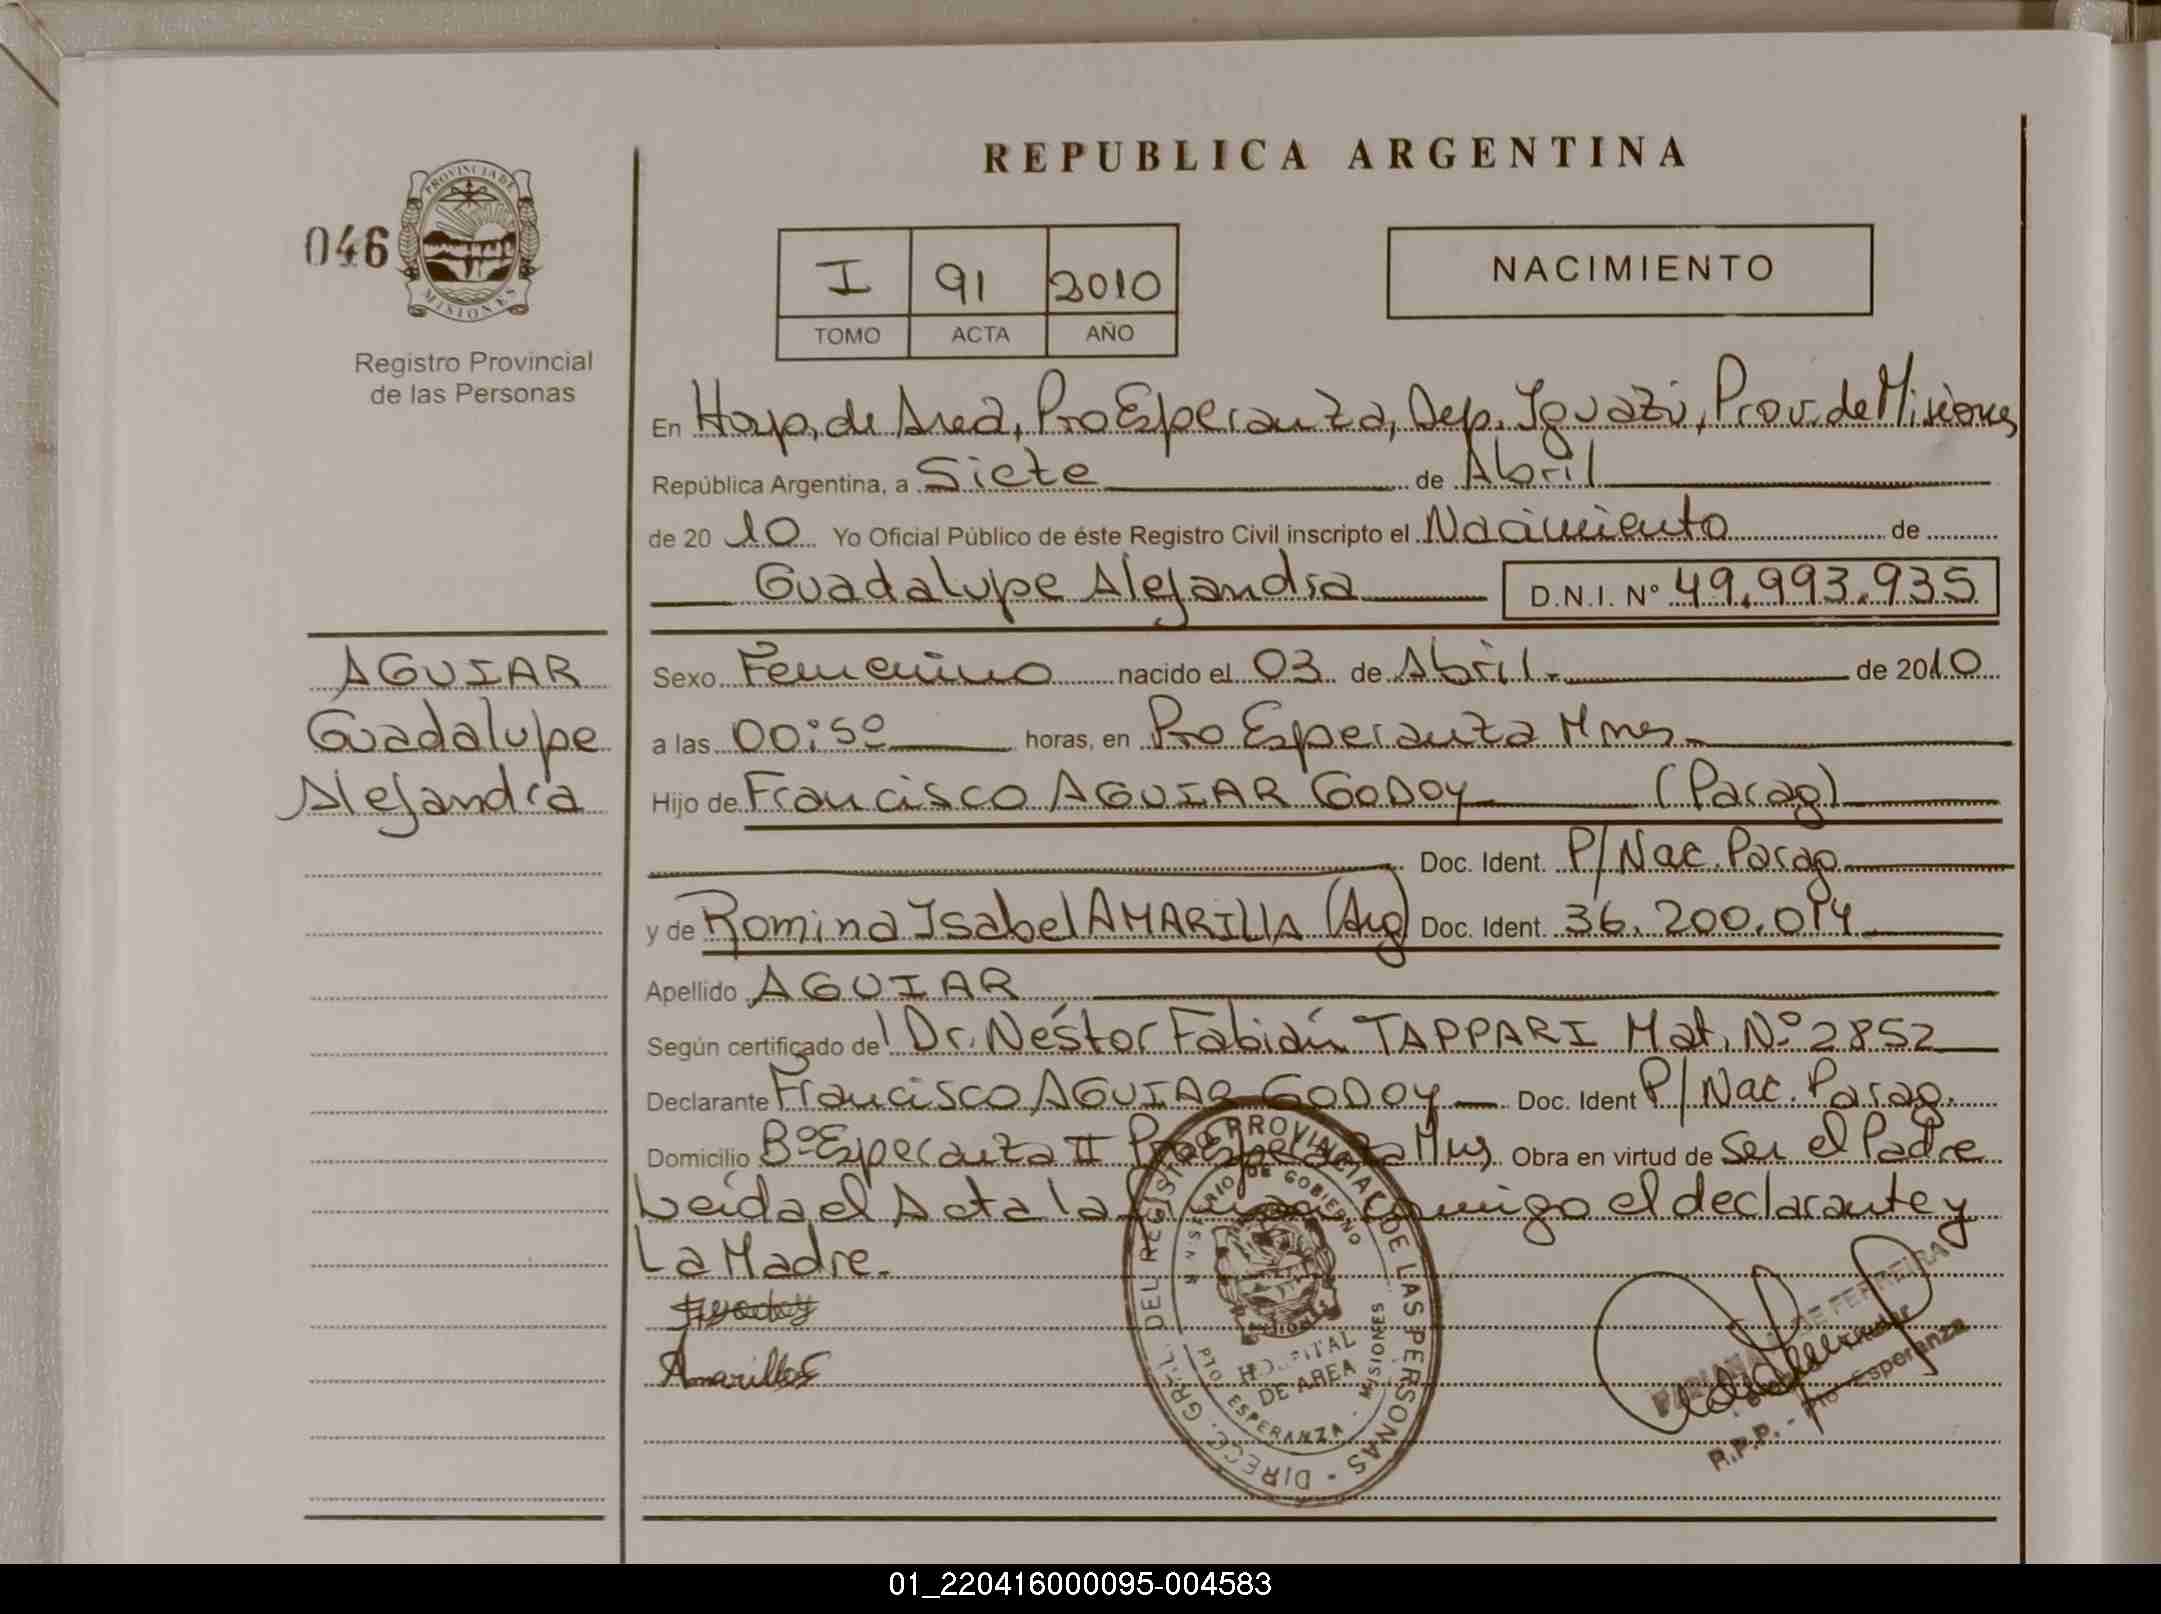 REPUBLICA ARGENTINA
046
PROVINCIA DE
MISIONES
Registro Provincial
de las Personas
I 91 2010
TOMO ACTA AÑO
NACIMIENTO
En Hosp. de Area, Pto Esperanza, Dep. Iguazú, Prov. de Misiones
República Argentina, a Siete de Abril
de 2010 Yo Oficial Público de éste Registro Civil inscripto el Nacimiento de
Guadalupe Alejandra D.N.I. Nº 49.993.935
AGUIAR
Guadalupe
Alejandra
Sexo Femenino nacido el 03 de Abril.- de 2010
a las 00:50 horas, en Pto Esperanza Mnes
Hijo de Francisco AGUIAR GODOY (Parag)
Doc. Ident. P/Nac. Parag.
y de Romina Isabel AMARILLA (Arg) Doc. Ident. 36.200.014
Apellido AGUIAR
Según certificado del Dr. Néstor Fabián TAPPARI Mat. Nº 2852
Declarante Francisco AGUIAR GODOY Doc. Ident P/Nac. Parag.
Domicilio Bº Esperanza II Pto Esperanza Mns Obra en virtud de ser el Padre
Leída el Acta la firman conmigo el declarante y
La Madre.
DIRECC. GRAL. DEL REGISTRO PROVINCIAL DE LAS PERSONAS
MINISTERIO DE GOBIERNO
HOSPITAL
DE AREA
PTO ESPERANZA - MISIONES
DE FERREIRA
R.P.P. - Pto Esperanza
01_220416000095-004583